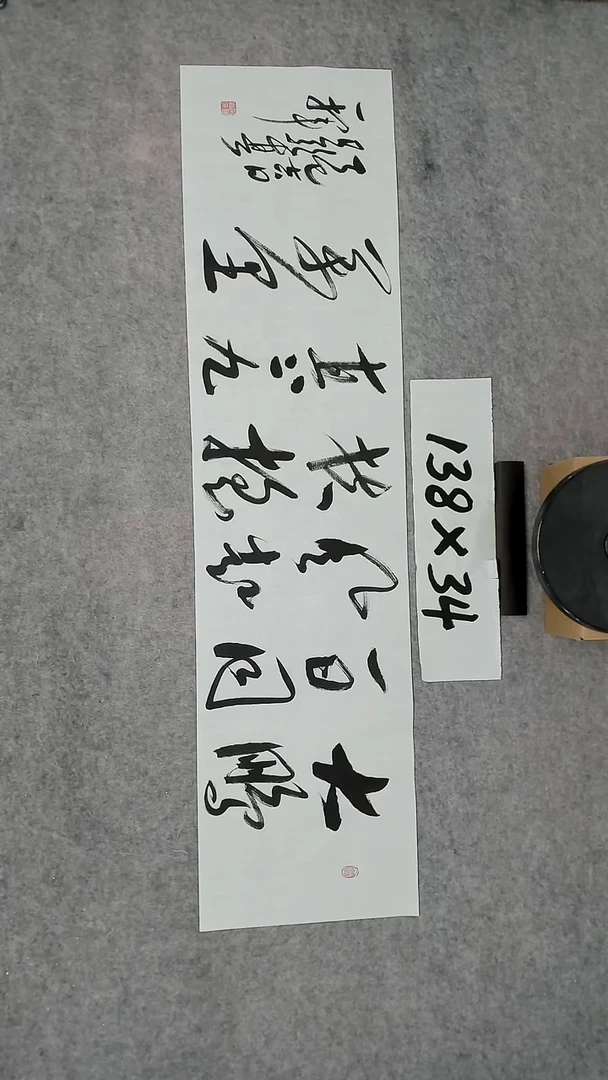 大鹏
一日同
风起
扶摇
直上九
万里
138×34